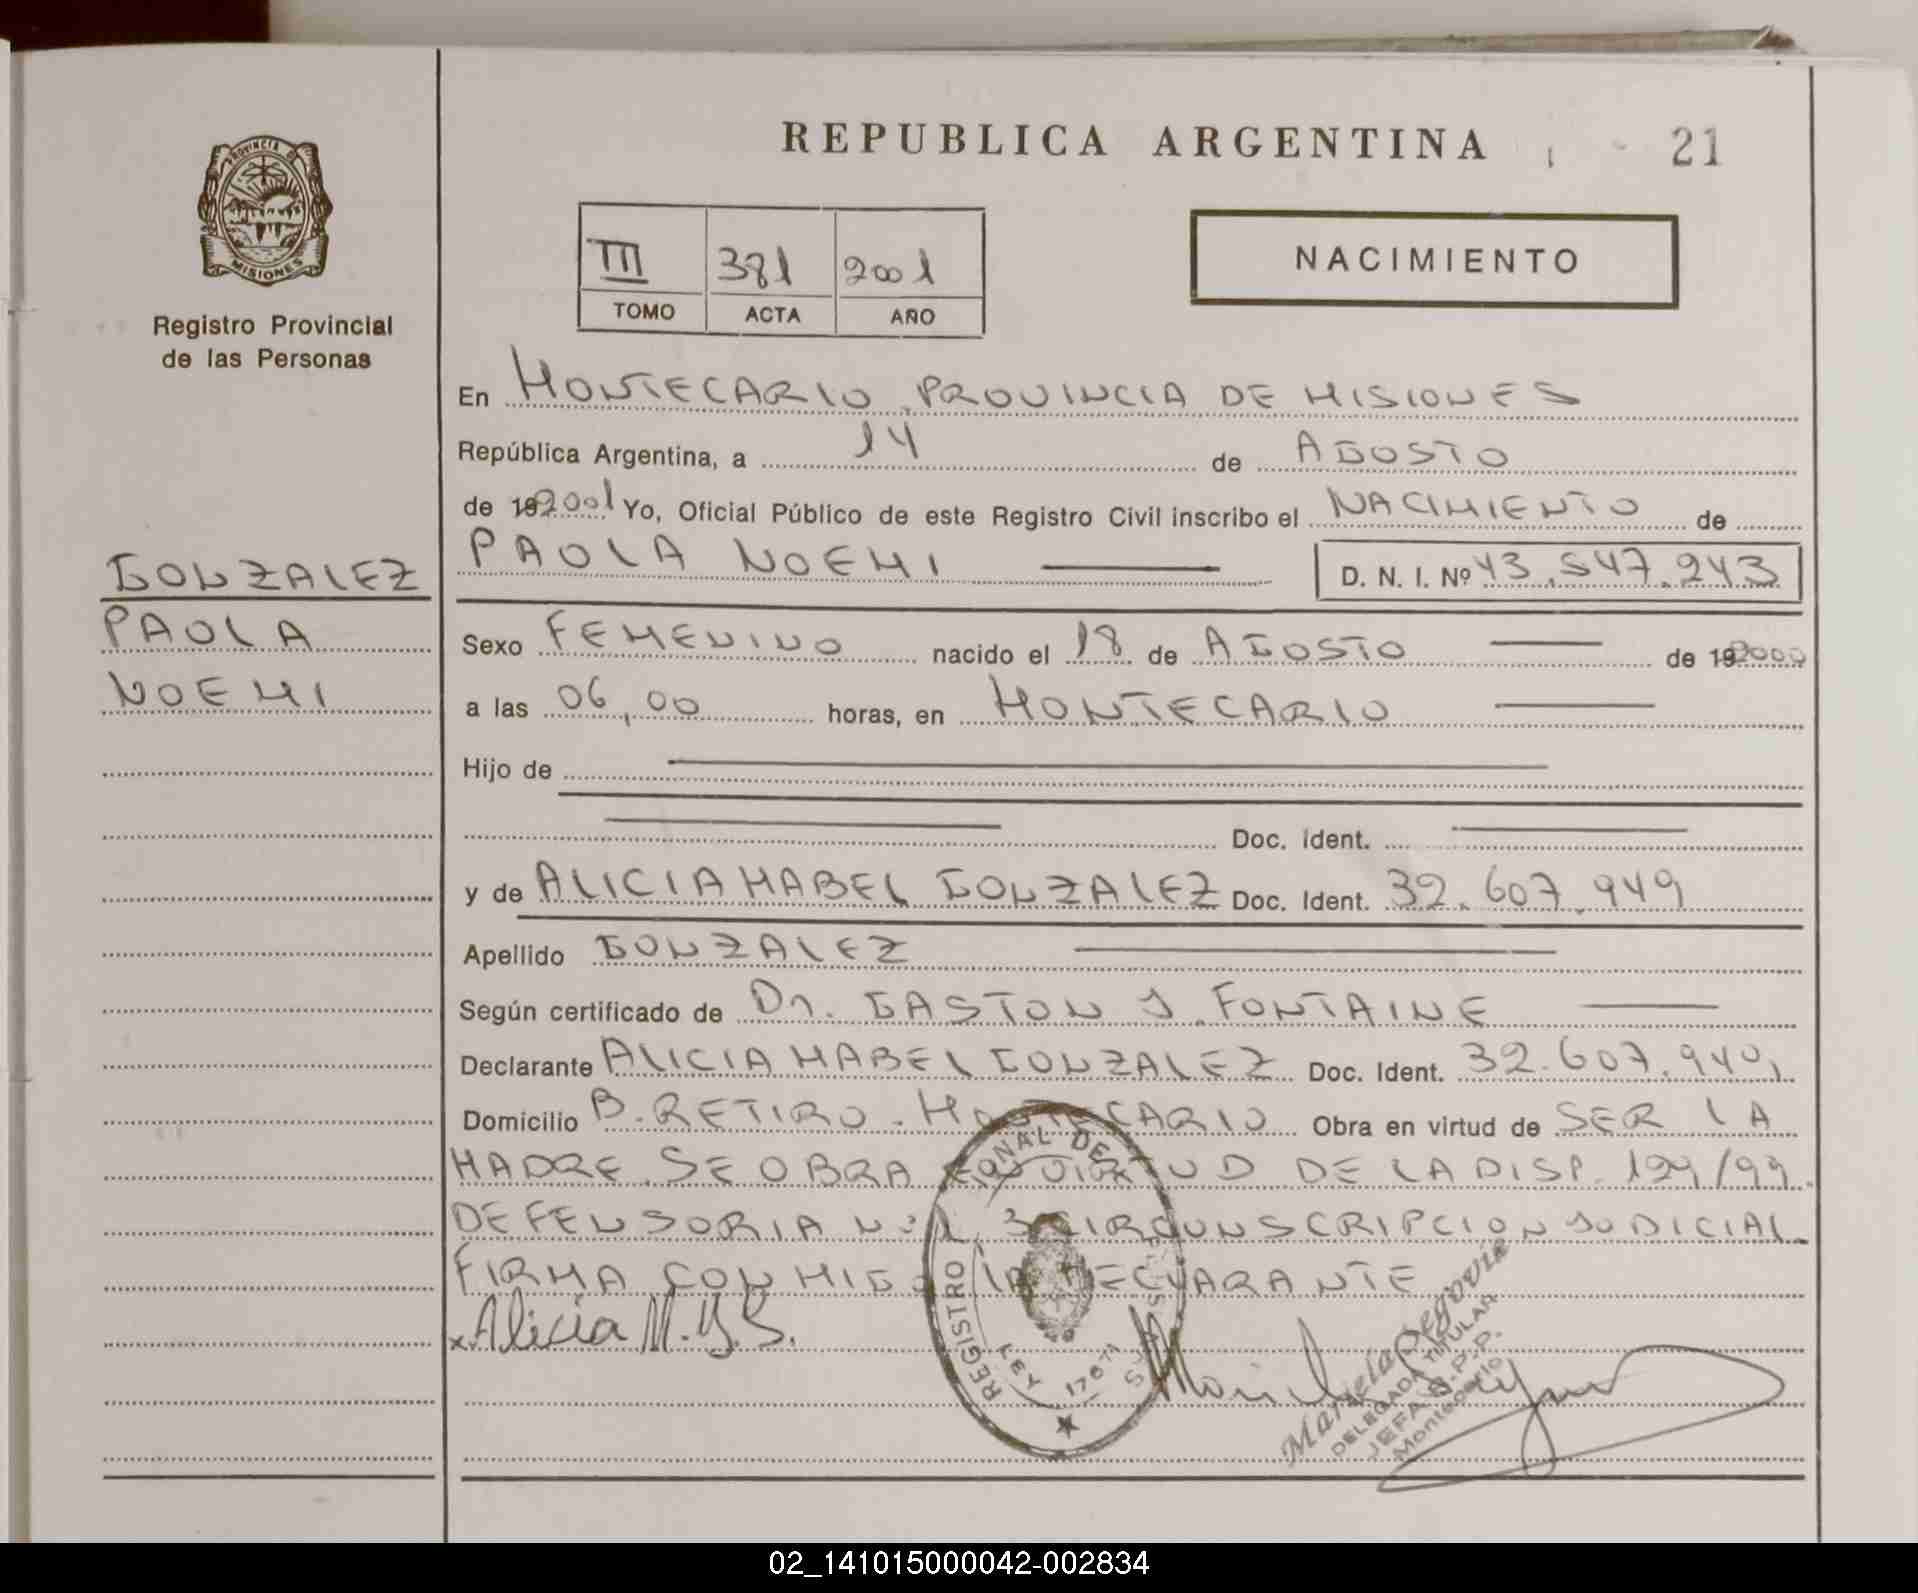 REPUBLICA ARGENTINA
21
PROVINCIA DE
MISIONES
Registro Provincial
de las Personas
III 381 2001
TOMO ACTA AÑO
NACIMIENTO
En MONTECARLO, PROVINCIA DE MISIONES
República Argentina, a 14 de AGOSTO
de 192001 Yo, Oficial Público de este Registro Civil inscribo el NACIMIENTO de
GONZALEZ
PAOLA
NOEMI
PAOLA NOEMI D. N. I. Nº 43.547.243
Sexo FEMENINO nacido el 18 de AGOSTO de 192000
a las 06,00 horas, en MONTECARLO
Hijo de
Doc. Ident.
y de ALICIA MABEL GONZALEZ Doc. Ident. 32.607.949
Apellido GONZALEZ
Según certificado de Dr. GASTON J. FONTAINE
Declarante ALICIA MABEL GONZALEZ Doc. Ident. 32.607.949,
Domicilio B. RETIRO - MONTECARLO Obra en virtud de SER LA
MADRE. SE OBRA EN VIRTUD DE LA DISP. 124/99
DEFENSORIA Nº 1, 3 CIRCUNSCRIPCION JUDICIAL.
FIRMA CONMIGO LA DECLARANTE
x Alicia M. G. S.
REGISTRO NAL DE
LEY 17671
Mariela Segovia
DELEGADA TITULAR
JEFA R.P.P.
Montecarlo
02_141015000042-002834